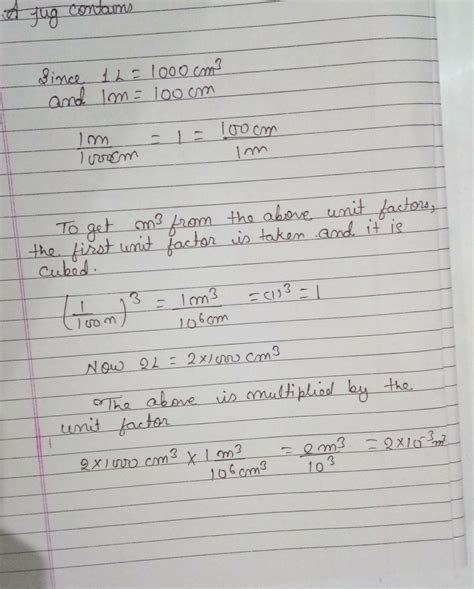 A jug contains
Since 1L = 1000 cm³
and 1m = 100 cm
1m/1000cm = 1 = 100cm/1m
To get m³ from the above unit factors,
the first unit factor is taken and it is
cubed.
(1/100m)³ = 1m³/10⁶cm = (1)³ = 1
Now 2L = 2×1000 cm³
The above is multiplied by the
unit factor
2×1000 cm³ × 1m³/10⁶cm³ = 2m³/10³ = 2×10⁻³m³